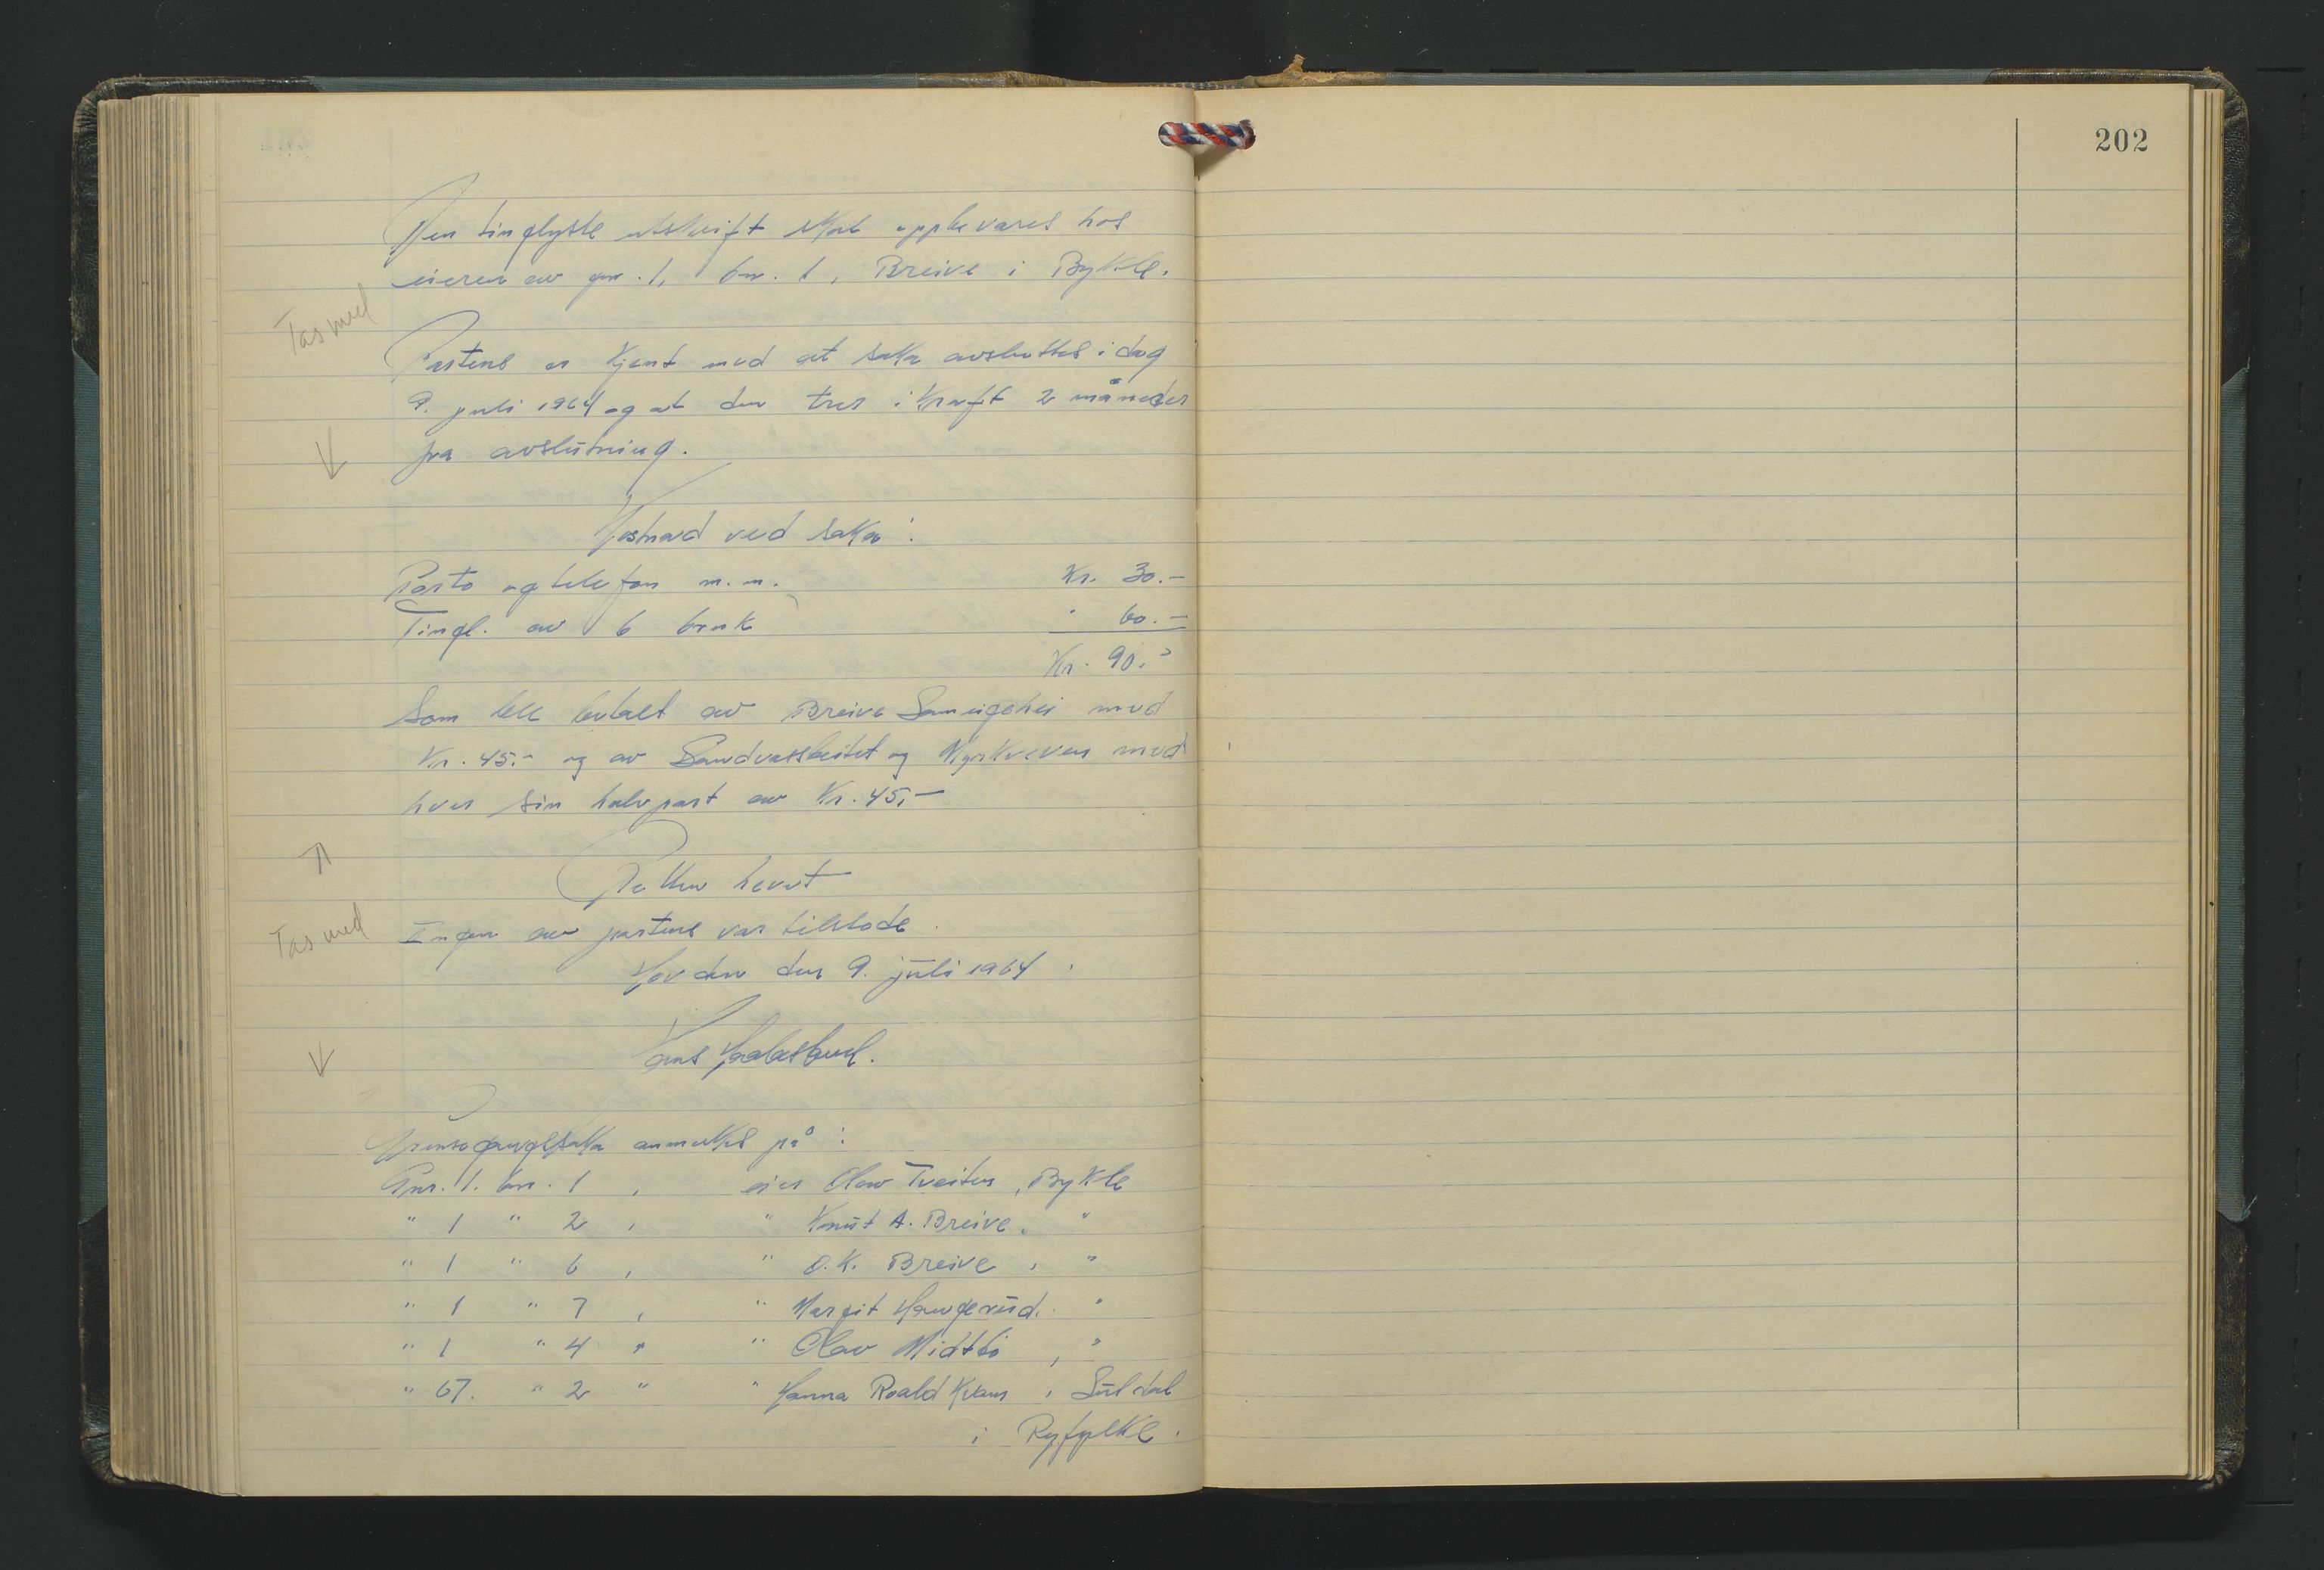 202
Den tinglyste utskrift skal oppbevares hos
eieren av gnr. 1, bnr. 1, Breive i Bykle.
Tas med
Partene er kjent med at saka avsluttes i dag
9. juli 1964 og at den trer i kraft 2 måneder
fra avslutning.
Kostnad ved saka:
Porto og telefon m.m. Kr. 30.-
Tingl. av 6 bruk " 60.-
Kr. 90.-
Som ble betalt av Breive Sameigehei med
Kr. 45.- og av Sandvassbeitet og med
hver sin halvpart av Kr. 45,-
Retten hevet
Tas med
Ingen av partene var tilstode.
Hovden den 9. juli 1964.
Grensegangssaka anmerkes på:
Gnr. 1. bnr. 1, eier Olav Tveiten, Bykle
" 1 " 2, " Knut A. Breive, "
" 1 " 6, " O.K. Breive, "
" 1 " 7, " Margit Haugerud, "
" 1 " 4 " " Olav Midtbö, "
" 67. " 2 " " Hanna Roald Kvam, Suldal
i Ryfylke.